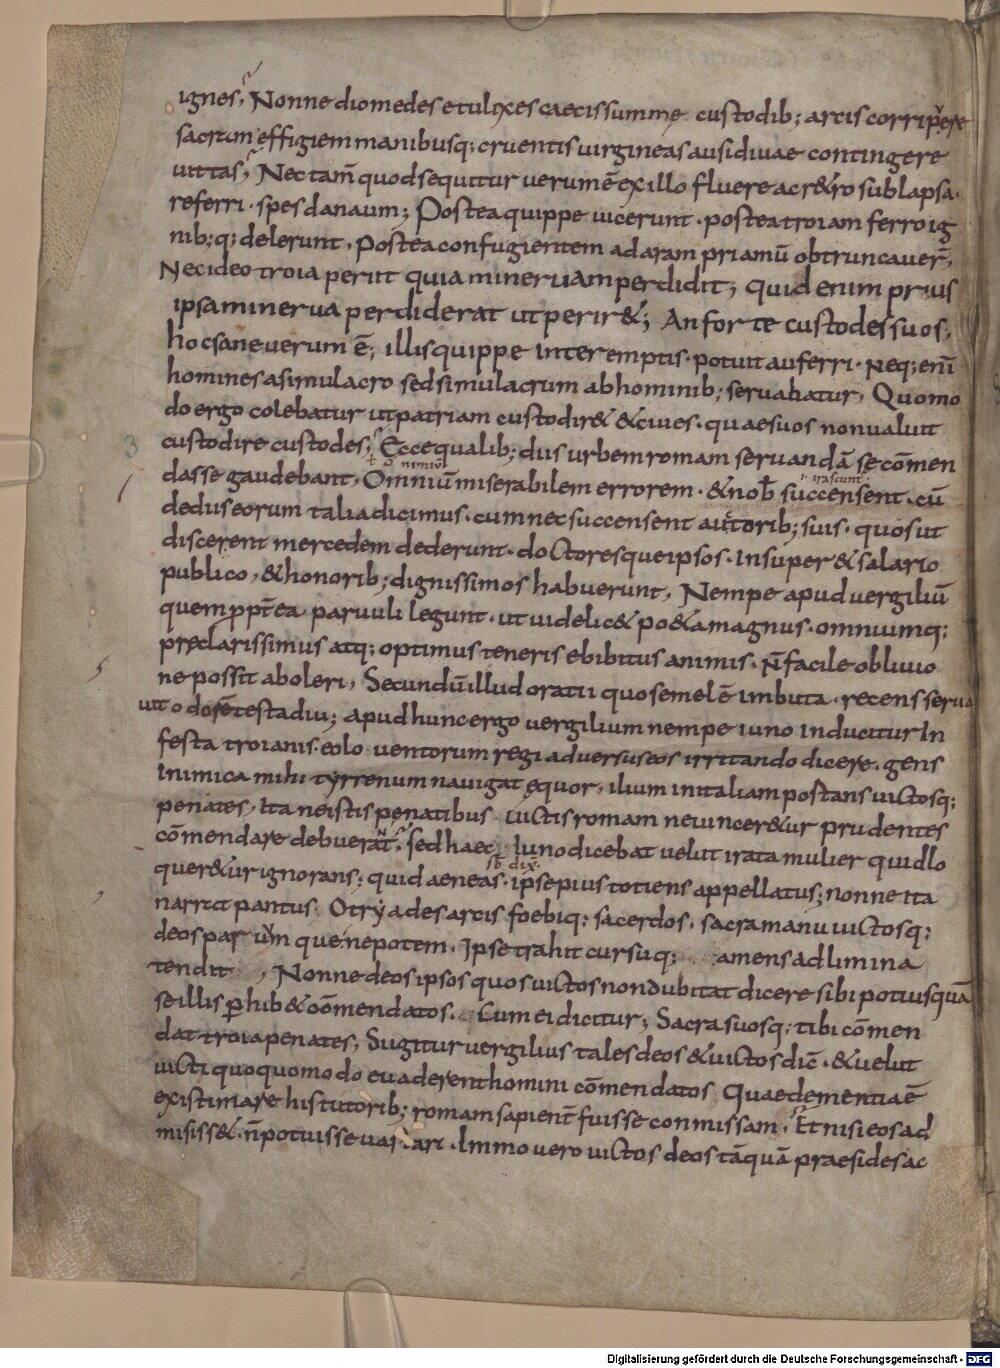 ignes; Nonne diomedes et ulixes caecis summe custodib; arcis corripere
sacram effigiem manibusq; cruentis uirgineas ausi diuae contingere
uittas; Nec tam̄ quod sequitur uerum ē ex illo fluere ac r&ro sublapsa
referri · spes danaum; Postea quippe uicerunt · postea troiam ferro ig
nib;q; delerunt · Postea confugientem ad aram priamū obtruncauer̄,
Nec ideo troia periit quia mineruam perdidit; quid enim prius
ipsa minerua perdiderat ut perir&; An forte custodes suos;
hoc sane uerum ē; illis quippe interemptis · potuit auferri · Neq; enī
homines a simulacro sed simulacrum ab hominib; seruabatur, Quomo
do ergo colebatur ut patriam custodir& & ciues · quae suos non ualuit
custodire custodes; Ecce qualib; diis urbem romam seruandā se cōmen
dasse gaudebant, O nimiū miserabilem errorem · & nob̄ succensent · cū
de diis eorum talia dicimus · cum nec succensent auctorib; suis · quos ut
discerent mercedem dederunt · doctoresque ipsos · insuper & salario
publico, & honorib; dignissimos habuerunt, Nempe apud uergiliū
quem ppt̄ea paruuli legunt · ut uidelic& po&a magnus · omniumq;
preclarissimus atq; optimus teneris ebibitus animis · n̄ facile obliuio
ne possit aboleri, Secundū illud oratii quo semel ē imbuta · recens serua
uit odorē testa diu; apud hunc ergo uergilium nempe iuno inducitur in
festa troianis · eolo uentorum regi aduersus eos irritando dicere · gens
inimica mihi tyrrenum nauigat equor, ilium in italiam postans uictosq;
penates, Ita ne istis penatibus uictis romam ne uincer&ur prudentes
cōmendare debuerat̄; sed haec iuno dicebat uelut irata mulier quid lo
quer&ur ignorans; quid aeneas · ipse pius totiens appellatus; nonne ita
narrat pantus Otryades arcis foebiq; sacerdos · sacra manu uictosq;
deos paruum que nepotem · Ipse trahit cursuq; amens ad limina
tendit, Nonne deos ipsos quos uictos non dubitat dicere sibi potius quā
se illis phib& cōmendatos · Cum ei dicitur; Sacra suosq; tibi cōmen
dat troia penates, Si igitur uergilius tales deos & uictos dic̄ · & uelut
uicti quoquo modo euaderent homini cōmendatos Quae dementia ē
existimare his tutorib; romam sapient̄ fuisse conmissam, Et nisi eos ad
misiss& · n̄ potuisse uastari · Immo uero uictos deos tāquā praesides ac
Digitalisierung gefördert durch die Deutsche Forschungsgemeinschaft - DFG